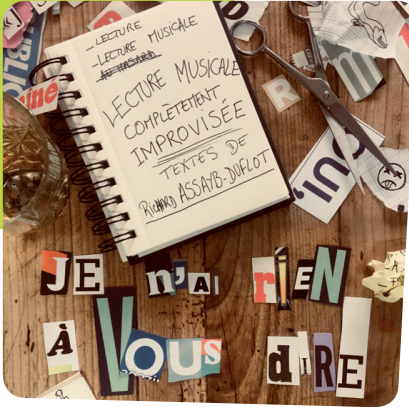 - LECTURE
- LECTURE MUSICALE
AU HASARD
LECTURE MUSICALE
COMPLÈTEMENT
IMPROVISÉE
TEXTES DE
RICHARD ASSAYB-DUFLOT
R
JE n'Ai riEN
À VOUS dIRE